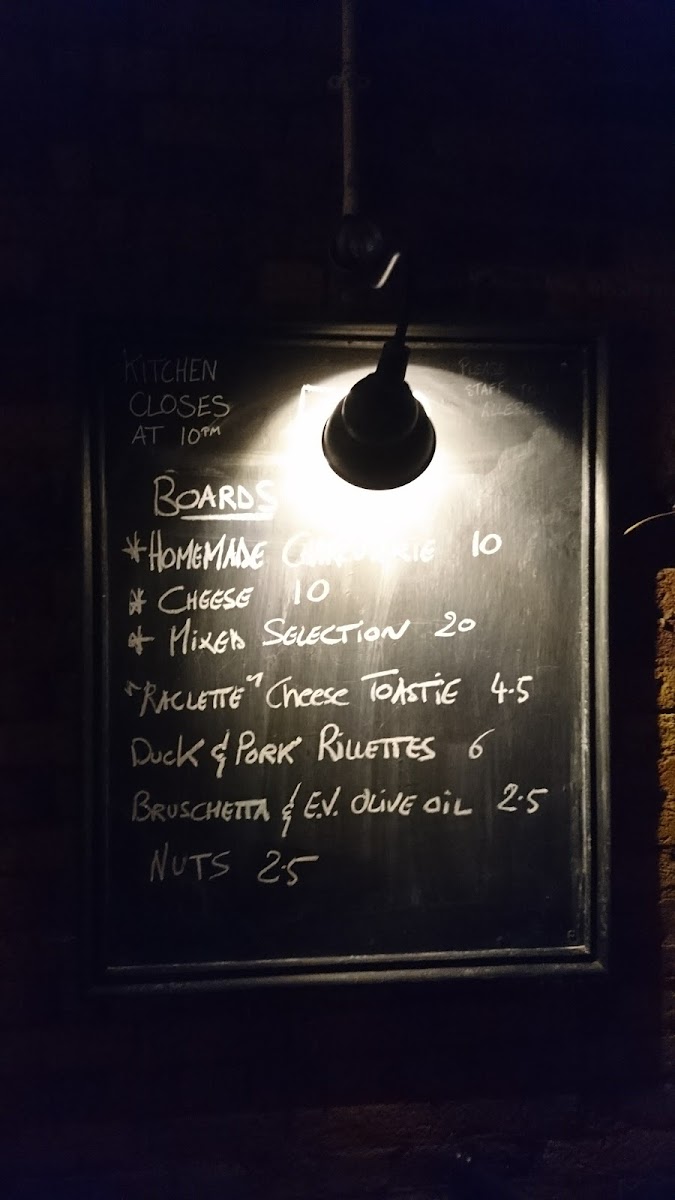 KITCHEN
CLOSES
AT 10PM
PLEASE
STAFF
BOARDS
* HOMEMADE CHARCUTERIE 10
* CHEESE 10
* MIXED SELECTION 20
"RACLETTE" CHEESE TOASTIE 4.5
DUCK & PORK RILLETTES 6
BRUSCHETTA & E.V. OLIVE OIL 2.5
NUTS 2.5